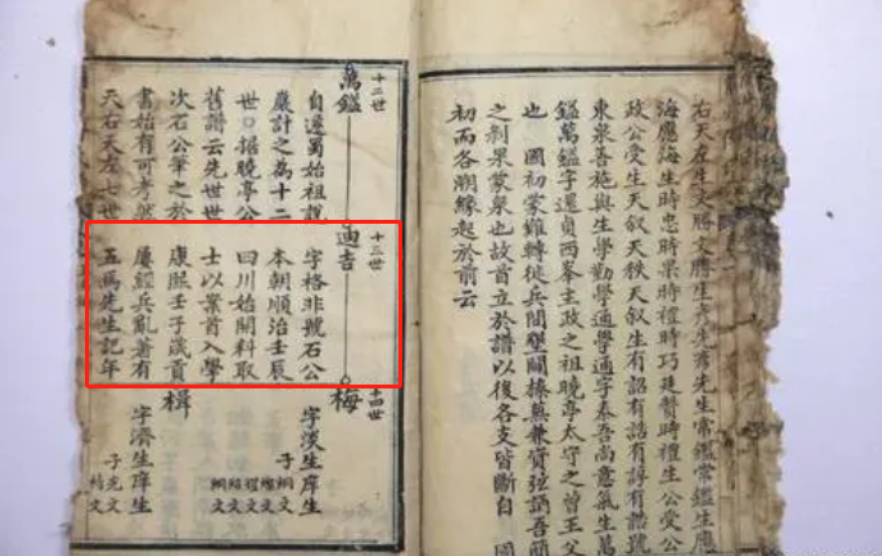 右天左生文勝文勝生彥先彥先生常鑑常鑑生應
海應海生時忠時果時禮時巧廷贊時禮生公受公
政公受生天叙天秩天叙生有詔有誥有諄有諧號
東泉善施與生學勤學通學通字泰吾尚意氣生萬
鎰萬鑑字選貞西峯主政之祖曉亭太守之曾王父
也 國初蒙難轉徙兵間墾闢榛蕪兼資弦誦吾簡
之剃果蒙泉也故首立於譜以後各支皆斷自 國
初而各溯緣起於前云
十二世
萬鎰
自遷蜀始祖說
嚴計之為十二
世〇據曉亭公
舊譜云先世世
次石公筆之於
書始有可考然
天右天左七世
十三世
廸吉
字格非號石公
本朝順治壬辰
四川始開科取
士以案首入學
康熙壬子歲貢
屢經兵亂著有
五馬先生記年
十四世
梅
字淡生庠生
楫
字濟生庠生
子光文